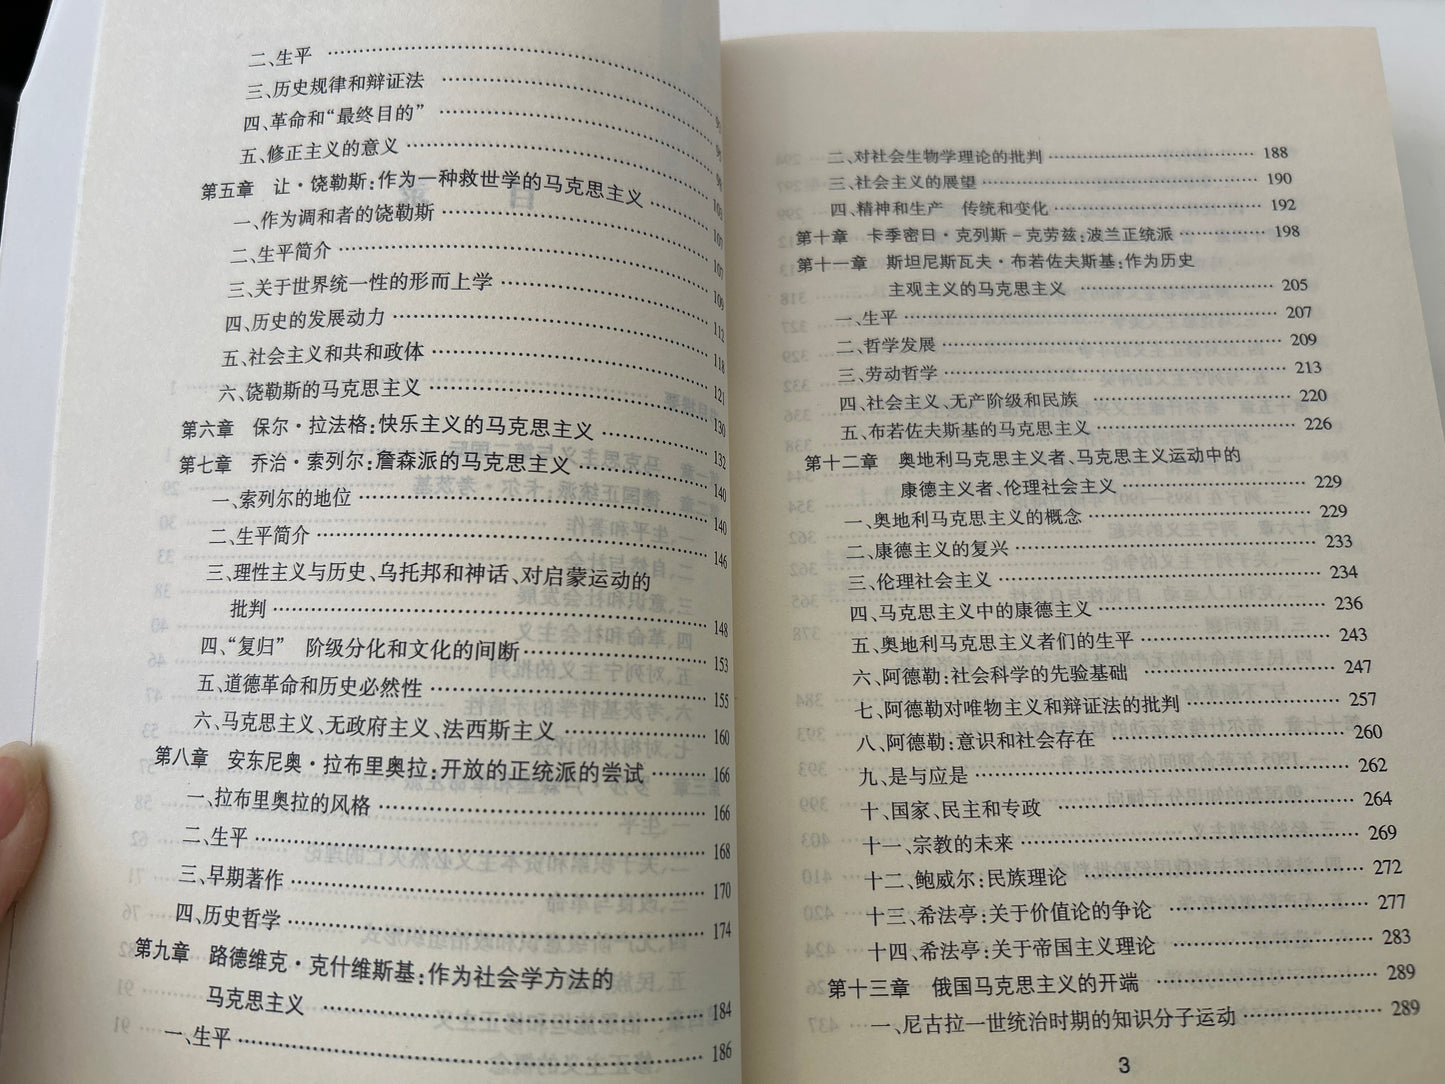 二、生平
三、历史规律和辩证法
四、革命和“最终目的” 95
五、修正主义的意义 98
第五章 让·饶勒斯:作为一种救世学的马克思主义 103
一、作为调和者的饶勒斯 107
二、生平简介 107
三、关于世界统一性的形而上学 109
四、历史的发展动力 112
五、社会主义和共和政体 118
六、饶勒斯的马克思主义 121
第六章 保尔·拉法格:快乐主义的马克思主义 130
第七章 乔治·索列尔:詹森派的马克思主义 132
一、索列尔的地位 140
二、生平简介 140
三、理性主义与历史、乌托邦和神话、对启蒙运动的 146
批判 148
四、“复归” 阶级分化和文化的间断 153
五、道德革命和历史必然性 155
六、马克思主义、无政府主义、法西斯主义 160
第八章 安东尼奥·拉布里奥拉:开放的正统派的尝试 166
一、拉布里奥拉的风格 166
二、生平 168
三、早期著作 170
四、历史哲学 174
第九章 路德维克·克什维斯基:作为社会学方法的
马克思主义 184
一、生平 186
二、对社会生物学理论的批判 188
三、社会主义的展望 190
四、精神和生产 传统和变化 192
第十章 卡季密日·克列斯－克劳兹:波兰正统派 198
第十一章 斯坦尼斯瓦夫·布若佐夫斯基:作为历史
主观主义的马克思主义 205
一、生平 207
二、哲学发展 209
三、劳动哲学 213
四、社会主义、无产阶级和民族 220
五、布若佐夫斯基的马克思主义 226
第十二章 奥地利马克思主义者、马克思主义运动中的
康德主义者、伦理社会主义 229
一、奥地利马克思主义的概念 229
二、康德主义的复兴 233
三、伦理社会主义 234
四、马克思主义中的康德主义 236
五、奥地利马克思主义者们的生平 243
六、阿德勒:社会科学的先验基础 247
七、阿德勒对唯物主义和辩证法的批判 257
八、阿德勒:意识和社会存在 260
九、是与应是 262
十、国家、民主和专政 264
十一、宗教的未来 269
十二、鲍威尔:民族理论 272
十三、希法亭:关于价值论的争论 277
十四、希法亭:关于帝国主义理论 283
第十三章 俄国马克思主义的开端 289
一、尼古拉一世统治时期的知识分子运动 289
3